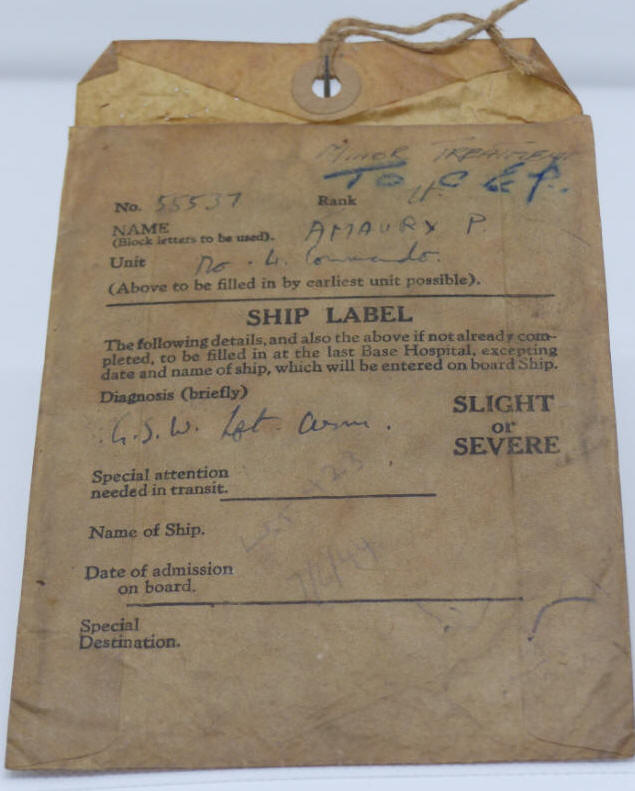 MINOR TREATMENT
TO C.E.P.
No. 55537 Rank Lt.
NAME AMAURY P.
(Block letters to be used).
Unit No. 4. Commando.
(Above to be filled in by earliest unit possible).
SHIP LABEL
The following details, and also the above if not already com-
pleted, to be filled in at the last Base Hospital, excepting
date and name of ship, which will be entered on board Ship.
Diagnosis (briefly)
SLIGHT
or
SEVERE
G.S.W. Left arm.
Special attention
needed in transit.
Name of Ship.
Date of admission
on board.
7/6/44
Special
Destination.